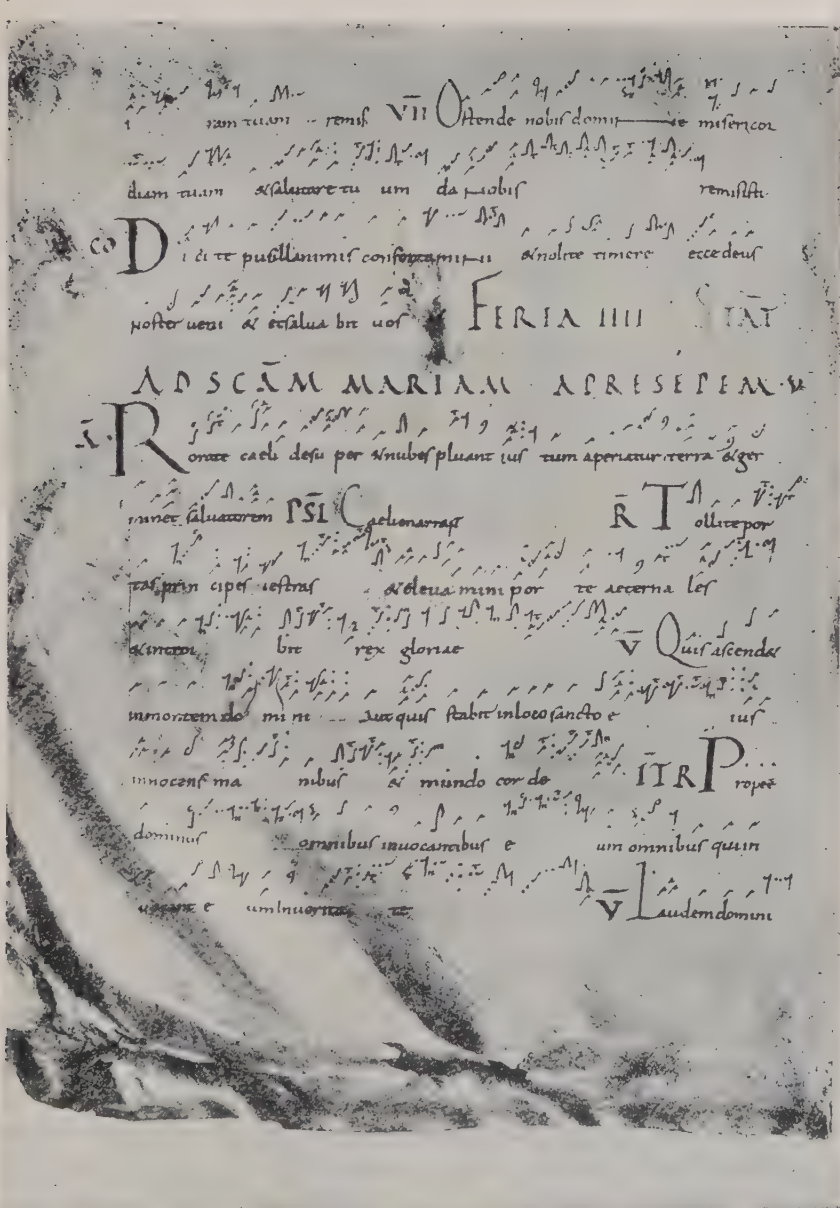 ram tuam remis VII Ostende nobis domine misericor
diam tuam & salutare tu um da nobis remisisti
CO Di ci te pusillanimis confortamini & nolite timere ecce deus
noster veni & etsalua bit uos FERIA IIII STAT
AD SCĀM MARIAM APRESEPEM
A Rorate caeli desu per & nubes pluant ius tum aperiatur terra & ger
minet saluatorem PSL Caeli enarrast R Tollite por
tas prin cipes uestras & eleua mini por te aeterna les
& introi bit rex gloriae V Quis ascend&
inmontem do mi ni Aut quis stabit inloco sancto e ius
innocens ma nibus & mundo cor de ITR Prope ē
dominus omnibus inuocantibus e um omnibus qui in
uocant e um Inuerita te V Laudem domini